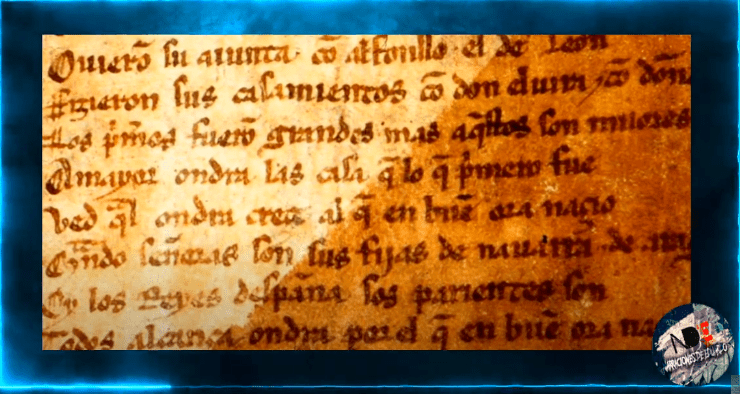 Ouierõ su aiunta cõ alfonsso el de Leon
ffizieron sus casamientos cõ don eluira ⁊ cõ doña
Los p̃meros fuerõ grandes mas aq̃stos son miiores
A mayor ondra las casa q̃ lo q̃ p̃mero fue
Ved q̃l ondra creçe al q̃ en buẽ ora naçio
Q̃ndo señoras son sus fijas de nauarra ⁊ de
Oy los Reyes despaña sos parientes son
Todos alcança ondra por el q̃ en buẽ ora na